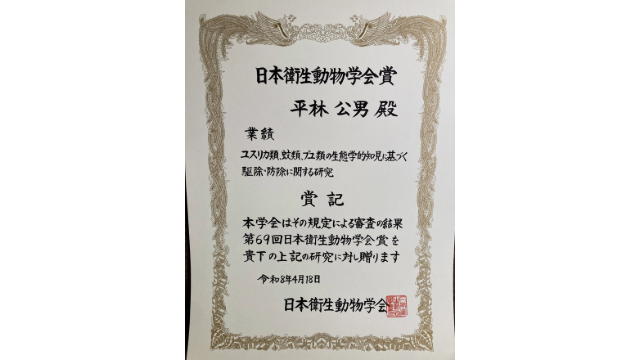 日本衛生動物学会賞
平林公男殿
業績
ユスリカ類、蚊類、ブユ類の生態学的知見に基づく
駆除・防除に関する研究
賞記
本学会はその規定による審査の結果
第69回日本衛生動物学会賞を
貴下の上記の研究に対し贈ります
令和8年4月18日
日本衛生動物学会